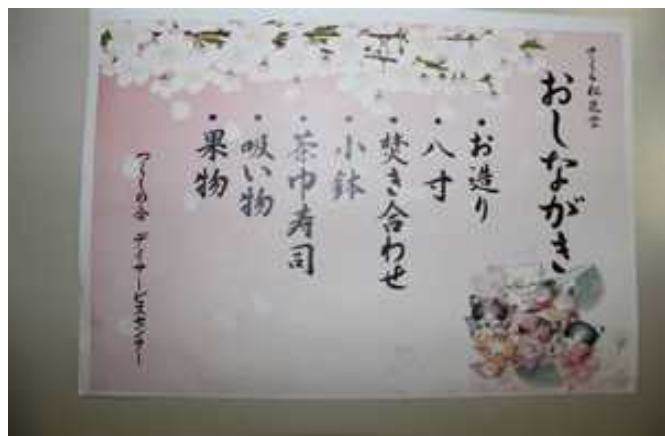 さくら松花堂
おしながき
・お造り
・八寸
・焚き合わせ
・小鉢
・茶巾寿司
・吸い物
・果物
つくしの会 デイサービスセンター